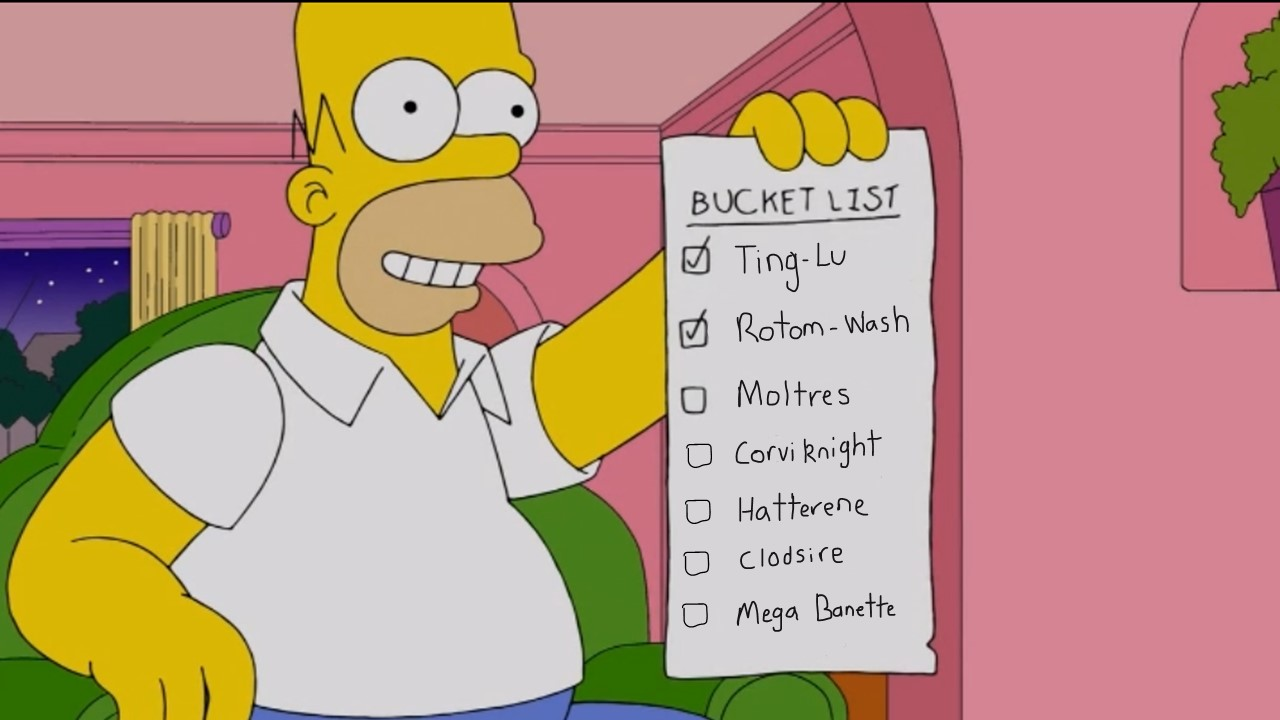 BUCKET LIST
Ting-Lu
Rotom-Wash
Moltres
Corviknight
Hatterene
Clodsire
Mega Banette